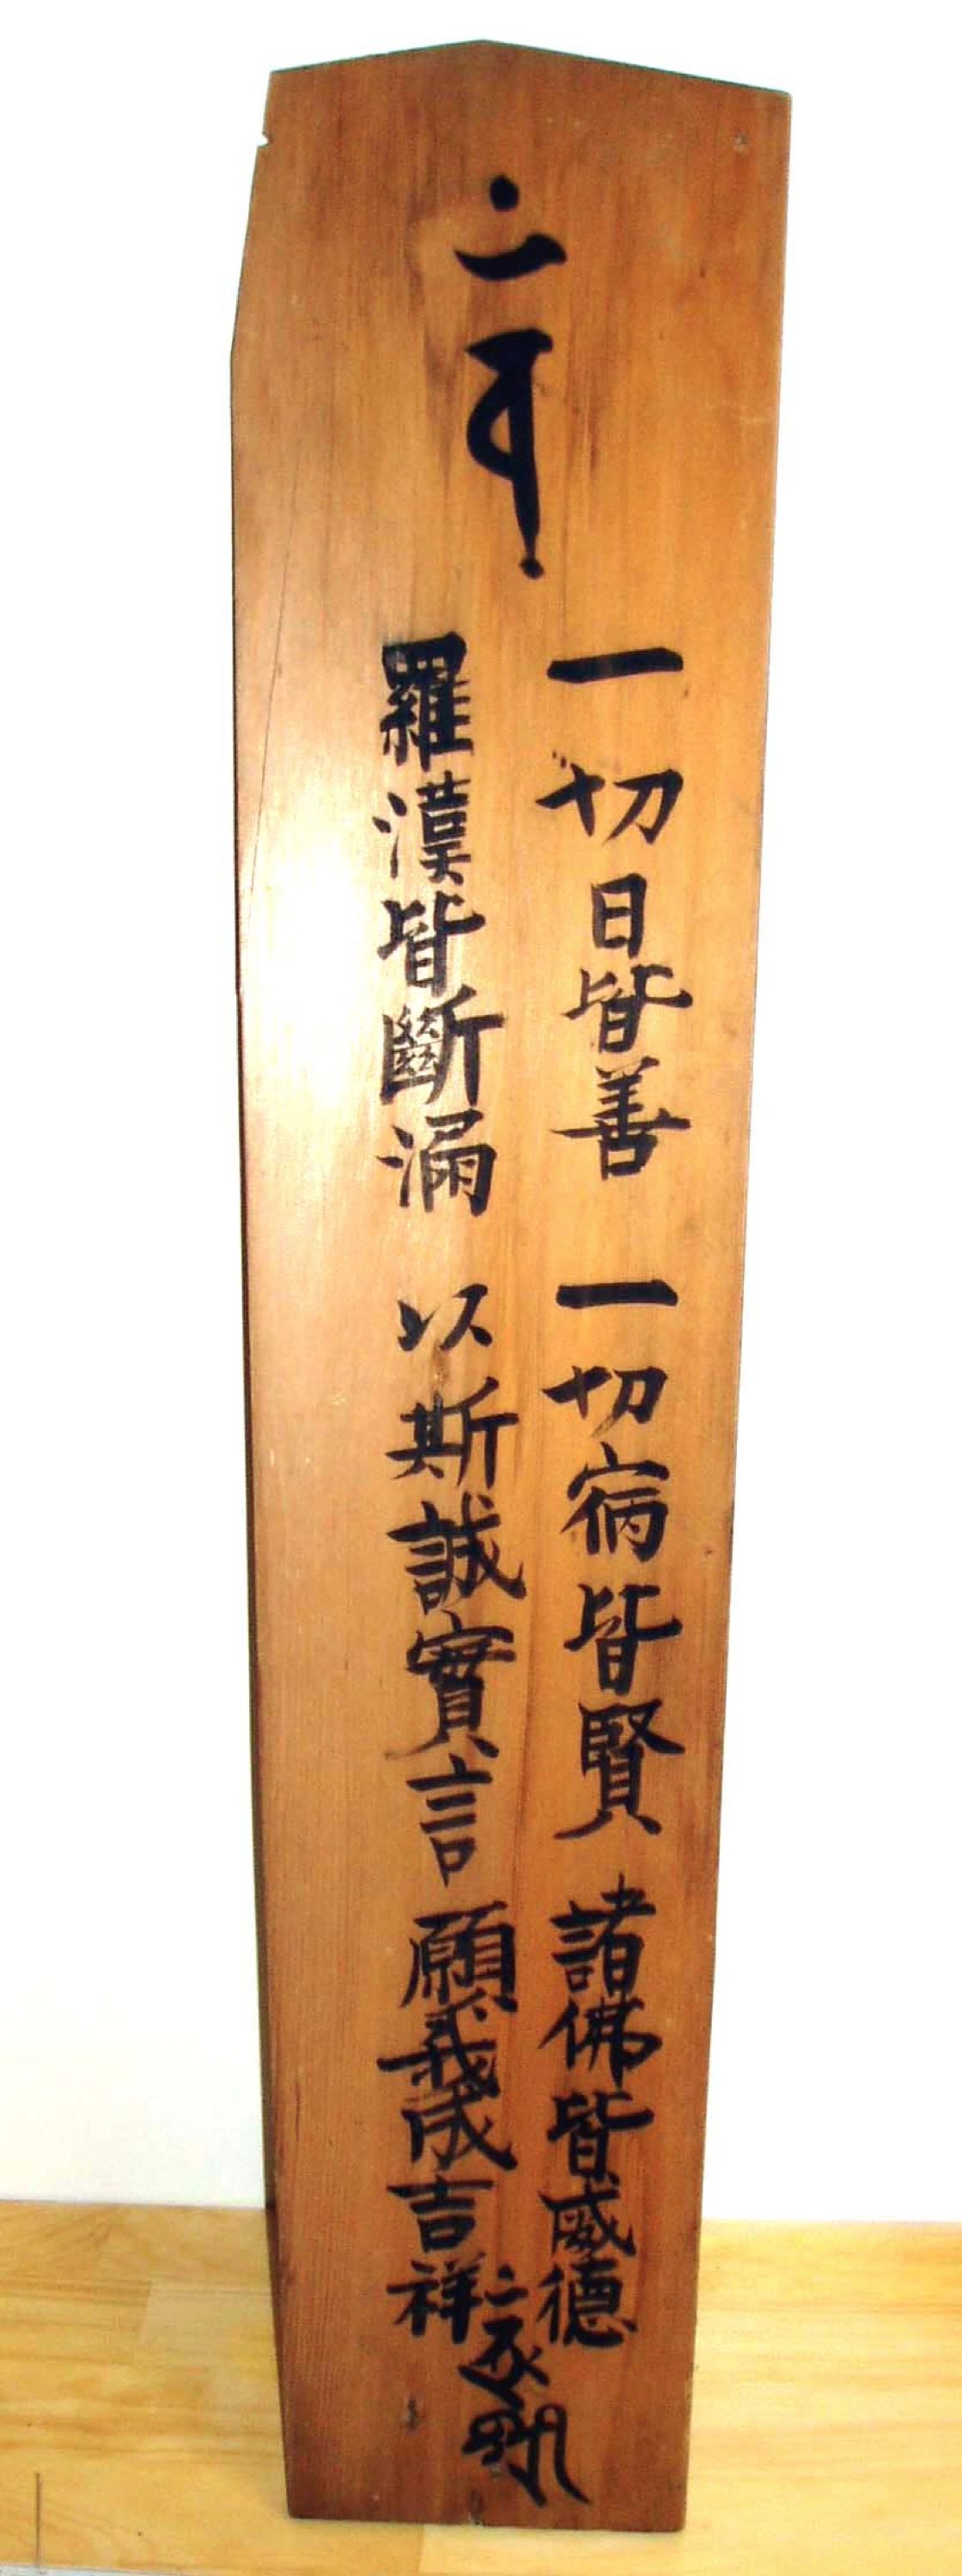 一切日皆善 一切宿皆賢 諸佛皆威德
羅漢皆斷漏 以斯誠實言 願我成吉祥